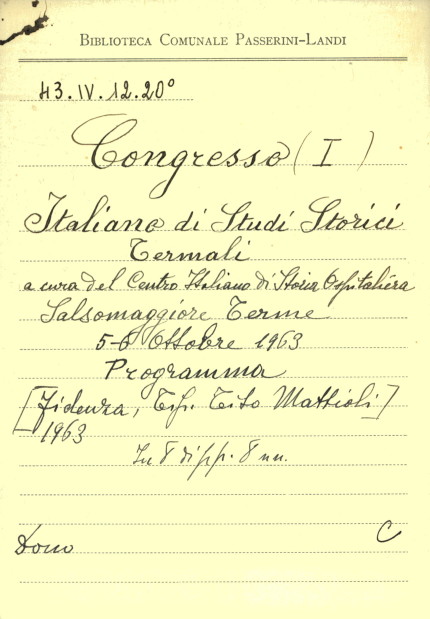 BIBLIOTECA COMUNALE PASSERINI-LANDI
43.IV.12.20°
Congresso (I)
Italiano di Studi Storici
Termali
a cura del Centro Italiano di Storia Ospitaliera
Salsomaggiore Terme
5-6 Ottobre 1963
Programma
[Fidenza, Tip. Tito Mattioli]
1963
In 8 di pp. 8 nn.
Dono C